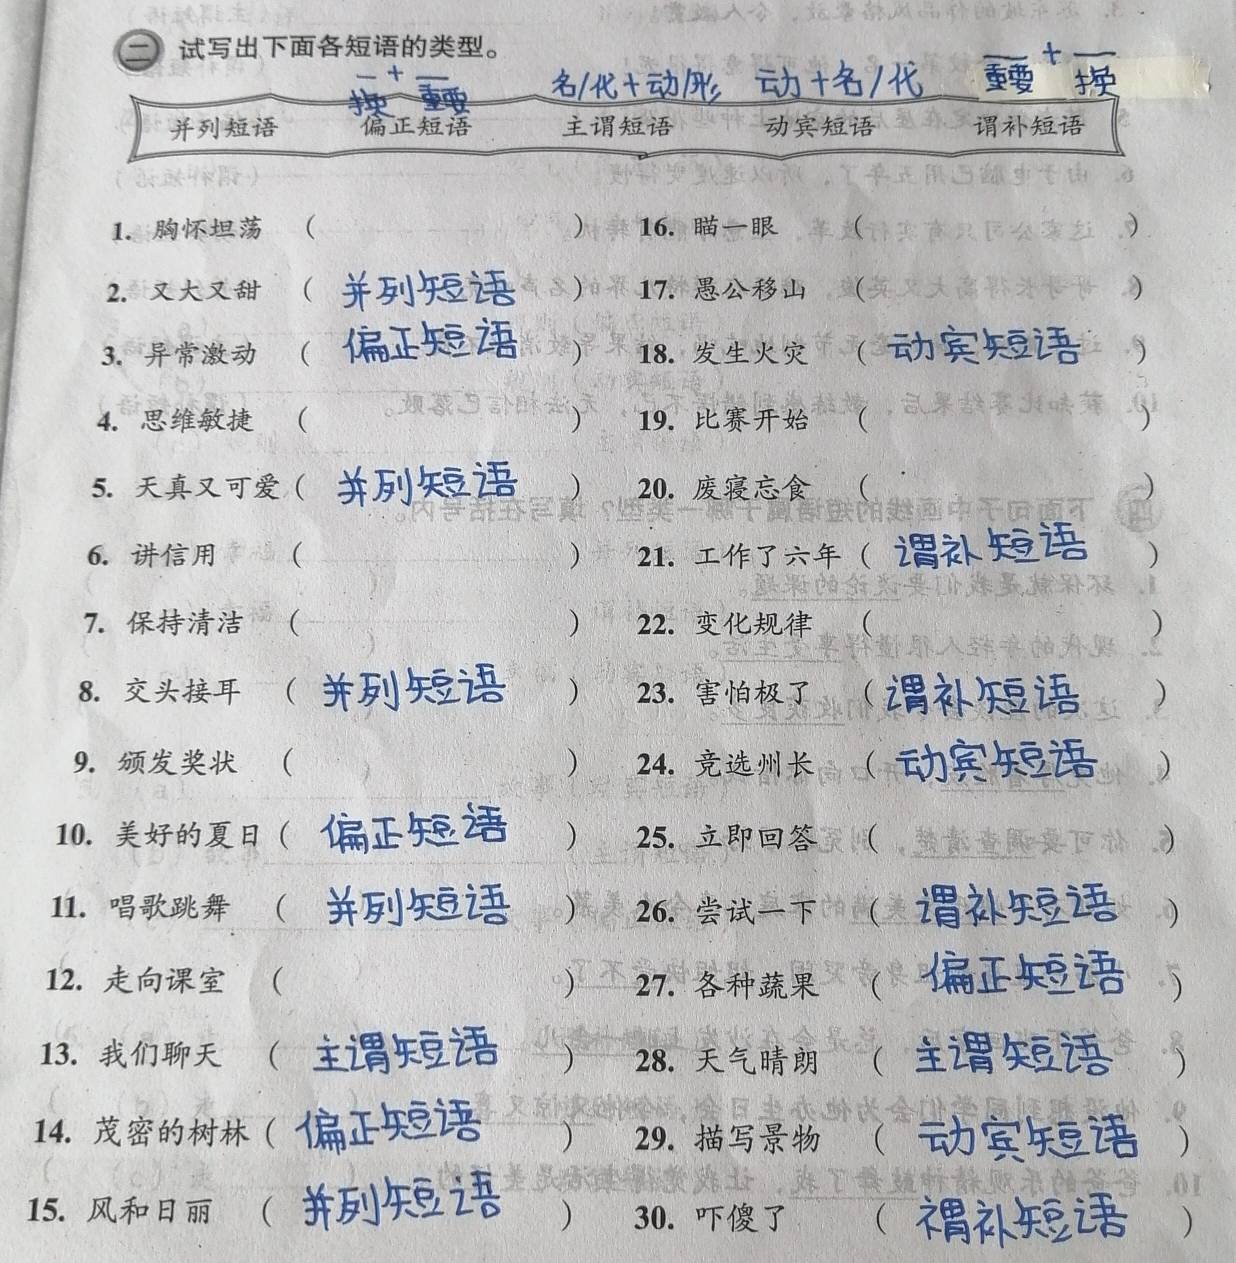 二 试写出下面各短语的类型。
一 + 一 名/代+动/形 动+名/代 一 + 一
换 重要 重要 换
并列短语 偏正短语 主谓短语 动宾短语 谓补短语
1. 胸怀坦荡 ( ) 16. 瞄一眼 ( )
2. 又大又甜 ( 并列短语 ) 17. 愚公移山 ( )
3. 异常激动 ( 偏正短语 ) 18. 发生火灾 ( 动宾短语 )
4. 思维敏捷 ( ) 19. 比赛开始 ( )
5. 天真又可爱 ( 并列短语 ) 20. 废寝忘食 ( )
6. 讲信用 ( ) 21. 工作了六年 ( 谓补短语 )
7. 保持清洁 ( ) 22. 变化规律 ( )
8. 交头接耳 ( 并列短语 ) 23. 害怕极了 ( 谓补短语 )
9. 颁发奖状 ( ) 24. 竞选州长 ( 动宾短语 )
10. 美好的夏日 ( 偏正短语 ) 25. 立即回答 ( )
11. 唱歌跳舞 ( 并列短语 ) 26. 尝试一下 ( 谓补短语 )
12. 走向课室 ( ) 27. 各种蔬果 ( 偏正短语 )
13. 我们聊天 ( 主谓短语 ) 28. 天气晴朗 ( 主谓短语 )
14. 茂密的树林 ( 偏正短语 ) 29. 描写景物 ( 动宾短语 )
15. 风和日丽 ( 并列短语 ) 30. 吓傻了 ( 谓补短语 )